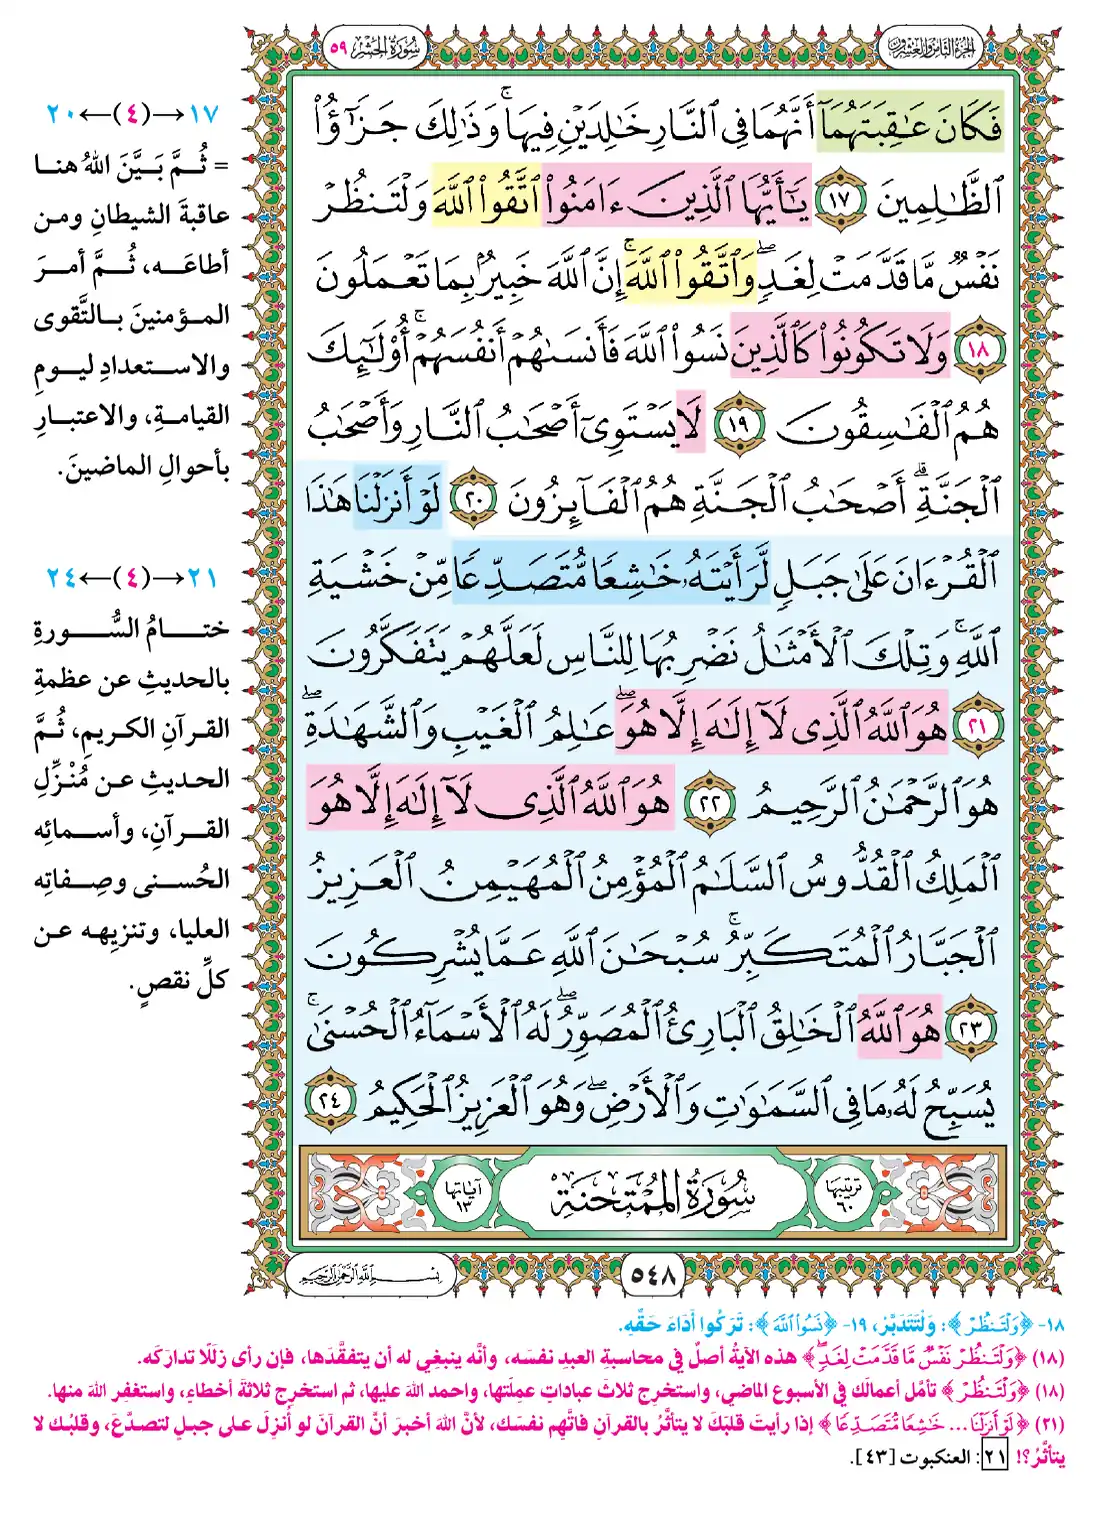 الجزء الثامن والعشرون
سُورَةُ الحَشْرِ ٥٩
فَكَانَ عَٰقِبَتَهُمَآ أَنَّهُمَا فِى ٱلنَّارِ خَٰلِدَيْنِ فِيهَا ۚ وَذَٰلِكَ جَزَٰٓؤُا۟
ٱلظَّٰلِمِينَ ١٧ يَٰٓأَيُّهَا ٱلَّذِينَ ءَامَنُوا۟ ٱتَّقُوا۟ ٱللَّهَ وَلْتَنظُرْ
نَفْسٌ مَّا قَدَّمَتْ لِغَدٍ ۖ وَٱتَّقُوا۟ ٱللَّهَ ۚ إِنَّ ٱللَّهَ خَبِيرٌۢ بِمَا تَعْمَلُونَ
١٨ وَلَا تَكُونُوا۟ كَٱلَّذِينَ نَسُوا۟ ٱللَّهَ فَأَنسَىٰهُمْ أَنفُسَهُمْ ۚ أُو۟لَٰٓئِكَ
هُمُ ٱلْفَٰسِقُونَ ١٩ لَا يَسْتَوِىٓ أَصْحَٰبُ ٱلنَّارِ وَأَصْحَٰبُ
ٱلْجَنَّةِ ۚ أَصْحَٰبُ ٱلْجَنَّةِ هُمُ ٱلْفَآئِزُونَ ٢٠ لَوْ أَنزَلْنَا هَٰذَا
ٱلْقُرْءَانَ عَلَىٰ جَبَلٍ لَّرَأَيْتَهُۥ خَٰشِعًا مُّتَصَدِّعًا مِّنْ خَشْيَةِ
ٱللَّهِ ۚ وَتِلْكَ ٱلْأَمْثَٰلُ نَضْرِبُهَا لِلنَّاسِ لَعَلَّهُمْ يَتَفَكَّرُونَ
٢١ هُوَ ٱللَّهُ ٱلَّذِى لَآ إِلَٰهَ إِلَّا هُوَ ۖ عَٰلِمُ ٱلْغَيْبِ وَٱلشَّهَٰدَةِ ۖ
هُوَ ٱلرَّحْمَٰنُ ٱلرَّحِيمُ ٢٢ هُوَ ٱللَّهُ ٱلَّذِى لَآ إِلَٰهَ إِلَّا هُوَ
ٱلْمَلِكُ ٱلْقُدُّوسُ ٱلسَّلَٰمُ ٱلْمُؤْمِنُ ٱلْمُهَيْمِنُ ٱلْعَزِيزُ
ٱلْجَبَّارُ ٱلْمُتَكَبِّرُ ۚ سُبْحَٰنَ ٱللَّهِ عَمَّا يُشْرِكُونَ
٢٣ هُوَ ٱللَّهُ ٱلْخَٰلِقُ ٱلْبَارِئُ ٱلْمُصَوِّرُ ۖ لَهُ ٱلْأَسْمَآءُ ٱلْحُسْنَىٰ ۚ
يُسَبِّحُ لَهُۥ مَا فِى ٱلسَّمَٰوَٰتِ وَٱلْأَرْضِ ۖ وَهُوَ ٱلْعَزِيزُ ٱلْحَكِيمُ ٢٤
ترتيبها ٦٠ سُورَةُ المُمْتَحنَةِ آياتها ١٣
٥٤٨
بِسْمِ اللَّهِ الرَّحْمَٰنِ الرَّحِيمِ
١٧→(٤)←٢٠
= ثُمَّ بَيَّنَ اللهُ هنا
عاقبةَ الشيطانِ ومن
أطاعَه، ثُمَّ أمرَ
المؤمنينَ بالتَّقوى
والاستعدادِ ليومِ
القيامةِ، والاعتبارِ
بأحوالِ الماضينَ.
٢١→(٤)←٢٤
ختامُ السُّورةِ
بالحديثِ عن عظمةِ
القرآنِ الكريمِ، ثُمَّ
الحديثِ عن مُنْزِّلِ
القرآنِ، وأسمائِه
الحُسنى وصِفاتِه
العليا، وتنزيهِه عن
كلِّ نقصٍ.
١٨- ﴿وَلْتَنظُرْ﴾: وَلْتَتَدَبَّرْ، ١٩- ﴿نَسُوا۟ ٱللَّهَ﴾: تَرَكُوا أَدَاءَ حَقِّهِ.
(١٨) ﴿وَلْتَنظُرْ نَفْسٌ مَّا قَدَّمَتْ لِغَدٍ ۖ﴾ هذه الآيةُ أصلٌ في محاسبةِ العبدِ نفسَه، وأنَّه ينبغِي له أن يتفقَّدَها، فإن رأى زللًا تداركَه.
(١٨) ﴿وَلْتَنظُرْ﴾ تأمَّل أعمالَك في الأسبوعِ الماضي، واستخرِج ثلاثَ عباداتٍ عملتَها، واحمد اللهَ عليها، ثم استخرِج ثلاثةَ أخطاءٍ، واستغفِر اللهَ منها.
(٢١) ﴿لَوْ أَنزَلْنَا ... خَٰشِعًا مُّتَصَدِّعًا﴾ إذا رأيتَ قلبَكَ لا يتأثَّرُ بالقرآنِ فاتَّهِم نفسَك، لأنَّ اللهَ أخبرَ أنَّ القرآنَ لو أُنزِلَ على جبلٍ لتصدَّعَ، وقلبُك لا
يتأثَّرُ؟! ٢١: العنكبوت [٤٣].